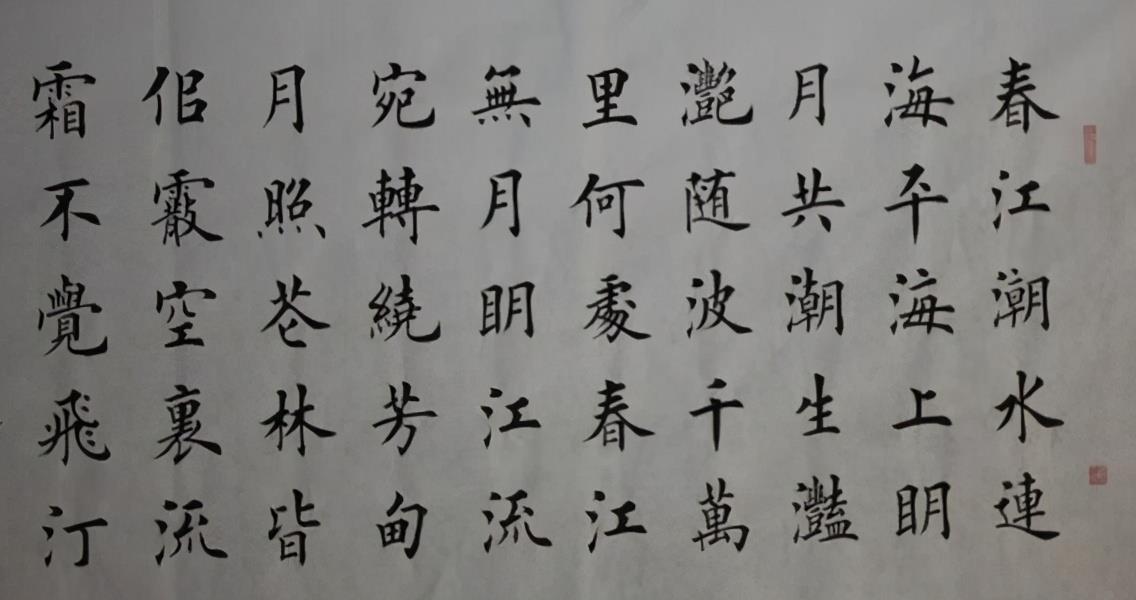 春江潮水連
海平海上明
月共潮生灩
灧随波千萬
里何處春江
無月明江流
宛轉繞芳甸
月照花林皆
佀霰空裏流
霜不覺飛汀